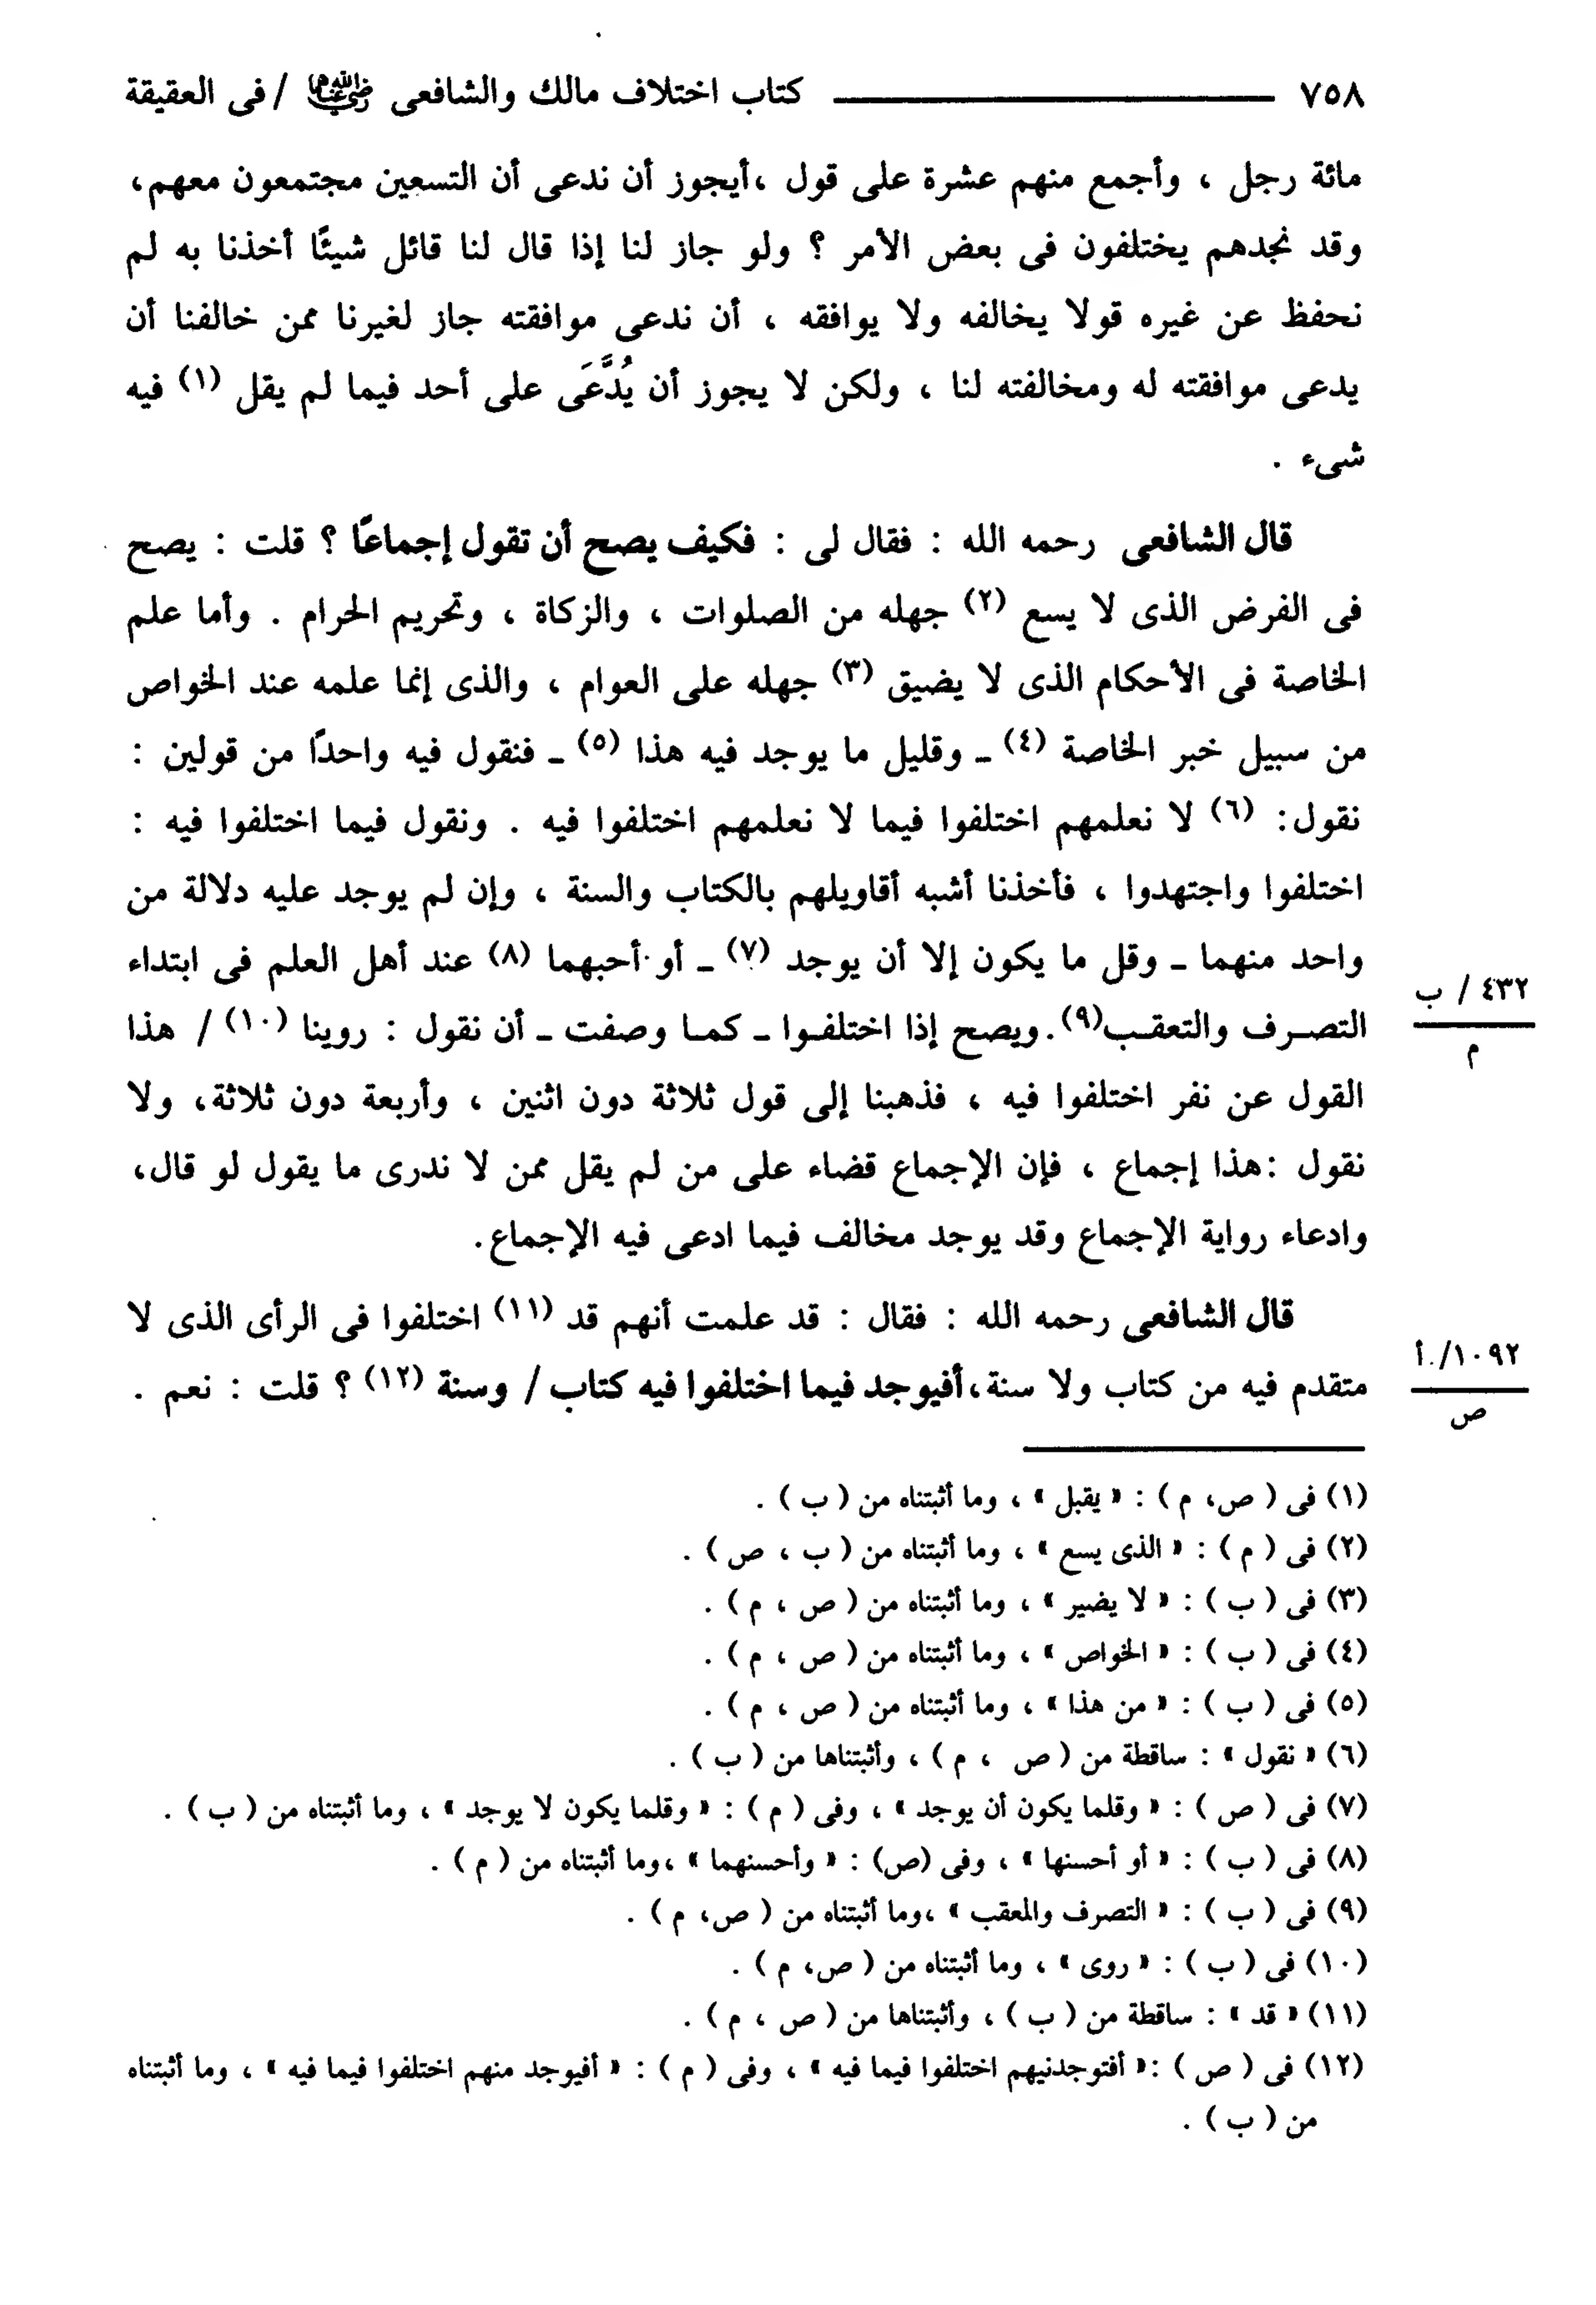 ٧٥٨ ـــــــــ كتاب اختلاف مالك والشافعى رضي الله عنهما / فى العقيقة
مائة رجل ، وأجمع منهم عشرة على قول ،أيجوز أن ندعى أن التسعين مجتمعون معهم،
وقد نجدهم يختلفون فى بعض الأمر ؟ ولو جاز لنا إذا قال لنا قائل شيئًا أخذنا به لم
نحفظ عن غيره قولا يخالفه ولا يوافقه ، أن ندعى موافقته جاز لغيرنا ممن خالفنا أن
يدعى موافقته له ومخالفته لنا ، ولكن لا يجوز أن يُدَّعَى على أحد فيما لم يقل (١) فيه
شىء .
قال الشافعى رحمه الله : فقال لى : فكيف يصح أن تقول إجماعًا ؟ قلت : يصح
فى الفرض الذى لا يسع (٢) جهله من الصلوات ، والزكاة ، وتحريم الحرام . وأما علم
الخاصة فى الأحكام الذى لا يضيق (٣) جهله على العوام ، والذى إنما علمه عند الخواص
من سبيل خبر الخاصة (٤) ـ وقليل ما يوجد فيه هذا (٥) ـ فنقول فيه واحدًا من قولين :
نقول: (٦) لا نعلمهم اختلفوا فيما لا نعلمهم اختلفوا فيه . ونقول فيما اختلفوا فيه :
اختلفوا واجتهدوا ، فأخذنا أشبه أقاويلهم بالكتاب والسنة ، وإن لم يوجد عليه دلالة من
واحد منهما ـ وقل ما يكون إلا أن يوجد (٧) ـ أو أحبهما (٨) عند أهل العلم فى ابتداء
٤٣٢ / ب
م
التصرف والتعقب(٩). ويصح إذا اختلفوا ـ كما وصفت ـ أن نقول : روينا (١٠) / هذا
القول عن نفر اختلفوا فيه ، فذهبنا إلى قول ثلاثة دون اثنين ، وأربعة دون ثلاثة، ولا
نقول :هذا إجماع ، فإن الإجماع قضاء على من لم يقل ممن لا ندرى ما يقول لو قال،
وادعاء رواية الإجماع وقد يوجد مخالف فيما ادعى فيه الإجماع.
قال الشافعى رحمه الله : فقال : قد علمت أنهم قد (١١) اختلفوا فى الرأى الذى لا
١٠٩٢/أ
ص
متقدم فيه من كتاب ولا سنة،أفيوجد فيما اختلفوا فيه كتاب / وسنة (١٢) ؟ قلت : نعم .
(١) فى ( ص، م ) : « يقبل » ، وما أثبتناه من ( ب ) .
(٢) فى ( م ) : « الذى يسع » ، وما أثبتناه من ( ب ، ص ) .
(٣) فى ( ب ) : « لا يضير » ، وما أثبتناه من ( ص ، م ) .
(٤) فى ( ب ) : « الخواص » ، وما أثبتناه من ( ص ، م ) .
(٥) فى ( ب ) : « من هذا » ، وما أثبتناه من ( ص ، م ) .
(٦) « نقول » : ساقطة من ( ص ، م ) ، وأثبتناها من ( ب ) .
(٧) فى ( ص ) : « وقلما يكون أن يوجد » ، وفى ( م ) : « وقلما يكون لا يوجد » ، وما أثبتناه من ( ب ) .
(٨) فى ( ب ) : « أو أحسنها » ، وفى (ص) : « وأحسنهما » ،وما أثبتناه من ( م ) .
(٩) فى ( ب ) : « التصرف والمعقب » ،وما أثبتناه من ( ص، م ) .
(١٠) فى ( ب ) : « روى » ، وما أثبتناه من ( ص، م ) .
(١١) « قد » : ساقطة من ( ب ) ، وأثبتناها من ( ص ، م ) .
(١٢) فى ( ص ) :« أفتوجدنيهم اختلفوا فيما فيه » ، وفى ( م ) : « أفيوجد منهم اختلفوا فيما فيه » ، وما أثبتناه
من ( ب ) .